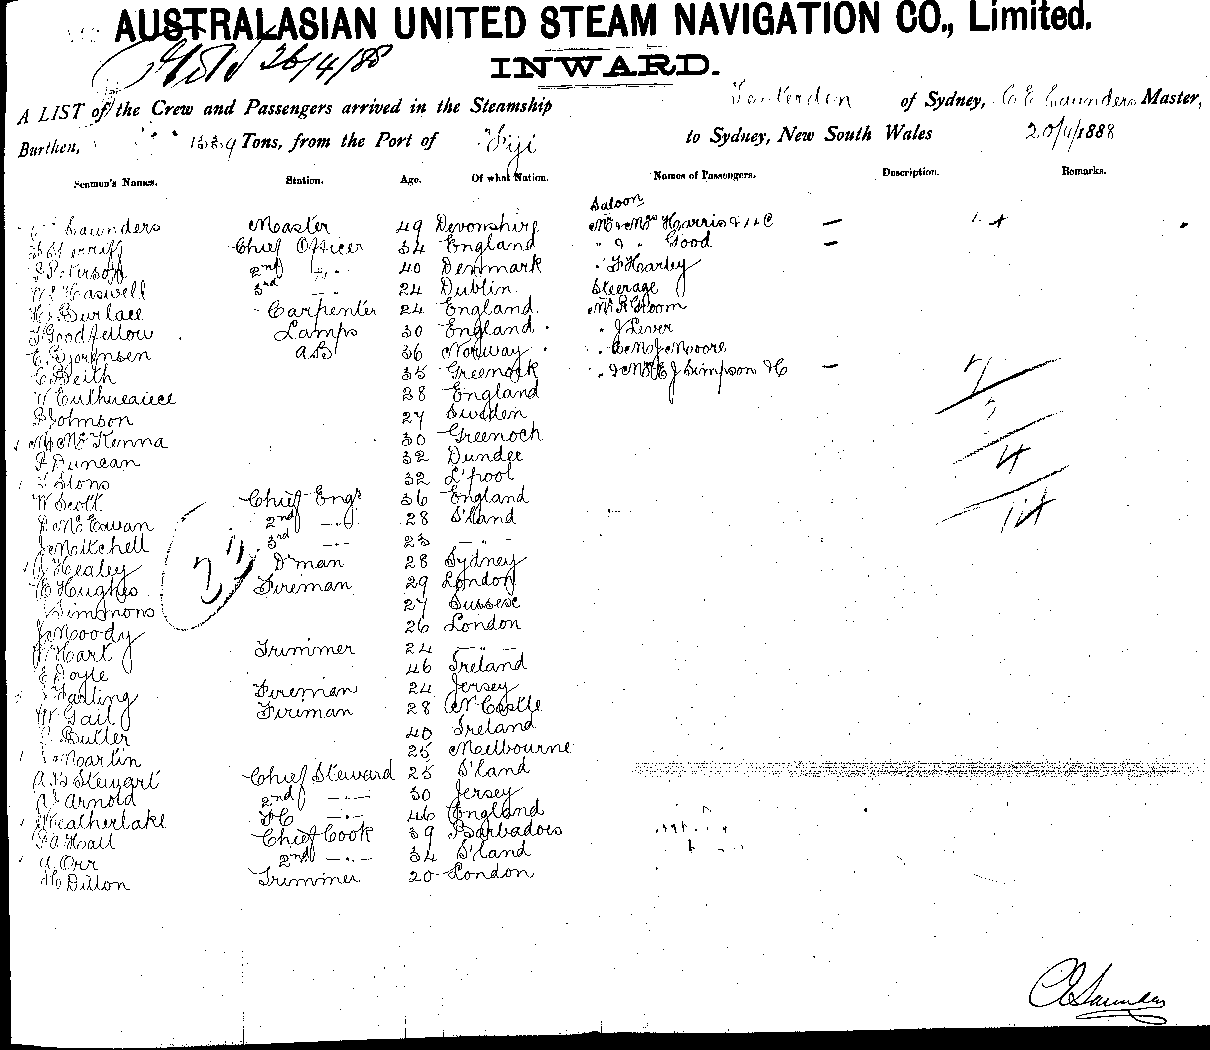 AUSTRALASIAN UNITED STEAM NAVIGATION CO., Limited.
26/4/88
INWARD.
A LIST of the Crew and Passengers arrived in the Steamship Tenterden of Sydney, C E Saunders Master,
Burthen, 1339 Tons, from the Port of Fiji to Sydney, New South Wales 20/4/1888
Seamen's Names. Station. Age. Of what Nation. Names of Passengers. Description. Remarks.
Saloon
Saunders Master 49 Devonshire Mr & Mrs Harris & C
Sherriff Chief Officer 34 England " & " Good
2nd " 40 Denmark " F Harley
Haswell 3rd " 24 Dublin Steerage
Burlace Carpenter 24 England Mr R Groom
Goodfellow Lamps 30 England " J Lever
C. Bjornsen AB 36 Norway
C Beith 35 Greenock " & Mrs E J Simpson & C
38 England 7
Johnson 27 Sweden 3
Mc Kenna 30 Greenock
Duncan 32 Dundee 4
32 L'pool
W Scott Chief Engr 36 England
Mc Ewan 2nd " 28 S'land 14
J Mitchell 3rd " 23 "
Healey D'man 28 Sydney
Hughes Fireman 29 London
Simmons 27 Sussex
J Moody 26 London
Hart Trimmer 24 "
Doyle 46 Ireland
Fireman 24 Jersey
W Gail Fireman 28 N Castle
Butler 40 Ireland
Martin 25 Melbourne
A B Stewart Chief Steward 25 S'land
Arnold 2nd " 30 Jersey
Weatherlake 46 England
Hall Chief Cook 39 Barbadoes
A Orr 2nd " 34 S'land
Dillon Trimmer 20 London
C E Saunders